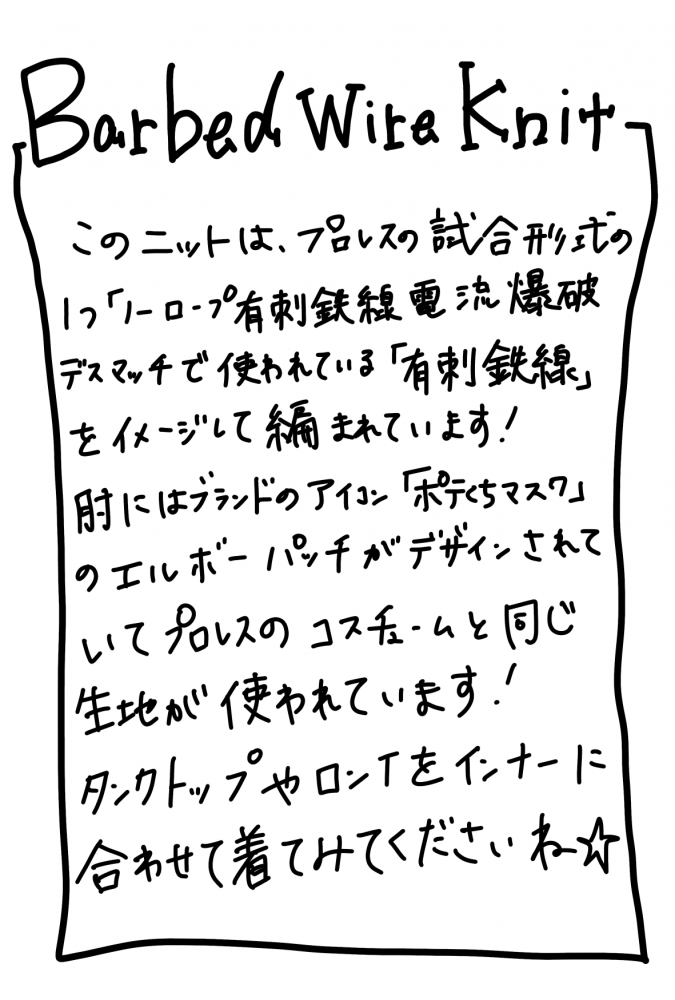 Barbed Wire Knit
このニットは、プロレスの試合形式の
1つ「ノーロープ有刺鉄線電流爆破
デスマッチで使われている「有刺鉄線」
をイメージして編まれています!
肘にはブランドのアイコン「ポテくちマスク」
のエルボーパッチがデザインされて
いてプロレスのコスチュームと同じ
生地が使われています!
タンクトップやロンTをインナーに
合わせて着てみてくださいね〜☆